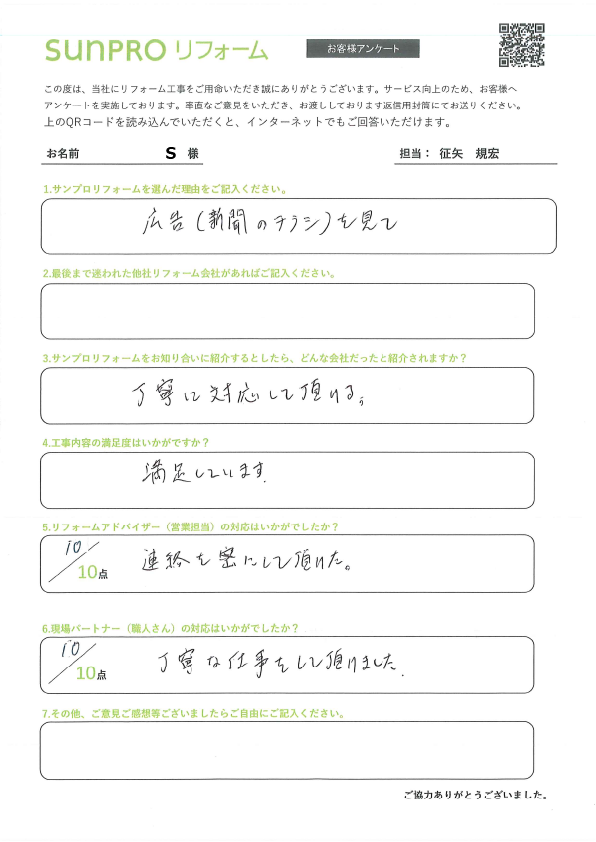 SUNPRO リフォーム
お客様アンケート
この度は、当社にリフォーム工事をご用命いただき誠にありがとうございます。サービス向上のため、お客様へ
アンケートを実施しております。率直なご意見をいただき、お渡ししております返信用封筒にてお送りください。
上のQRコードを読み込んでいただくと、インターネットでもご回答いただけます。
お名前 S 様 担当： 征矢 規宏
1.サンプロリフォームを選んだ理由をご記入ください。
広告(新聞のチラシ)を見て
2.最後まで迷われた他社リフォーム会社があればご記入ください。
3.サンプロリフォームをお知り合いに紹介するとしたら、どんな会社だったと紹介されますか？
丁寧に対応して頂ける。
4.工事内容の満足度はいかがですか？
満足しています.
5.リフォームアドバイザー（営業担当）の対応はいかがでしたか？
10/10点 連絡を密にして頂けた。
6.現場パートナー（職人さん）の対応はいかがでしたか？
10/10点 丁寧な仕事をして頂けました.
7.その他、ご意見ご感想等ございましたらご自由にご記入ください。
ご協力ありがとうございました。